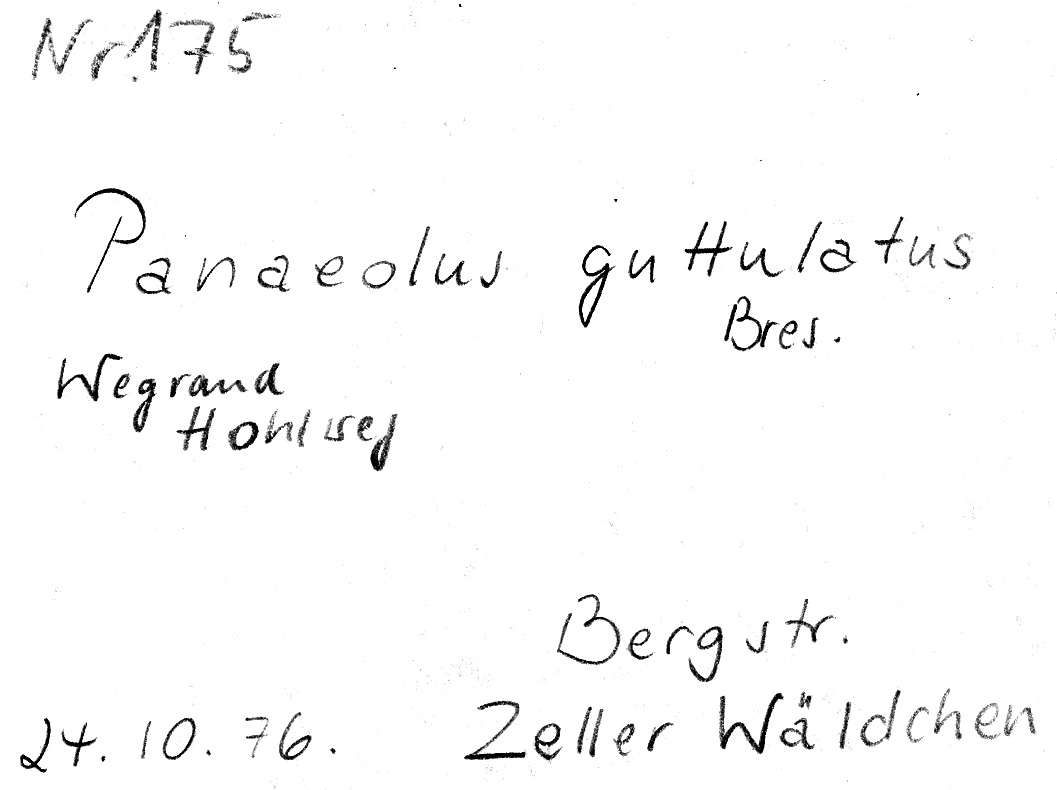 Nr. 175
Panaeolus guttulatus
Bres.
Wegrand
Hohlweg
Bergstr.
24.10.76. Zeller Wäldchen